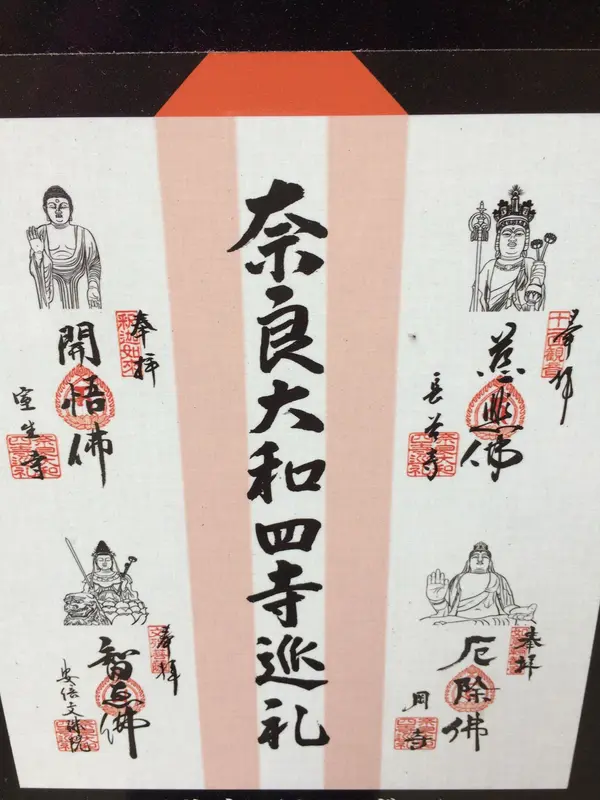 奈良大和四寺巡礼
奉拝
十一面観音
長谷寺
奉拝
厄除佛
岡寺
奉拝
釈迦如来
開悟佛
室生寺
奉拝
智恵佛
安倍文殊院